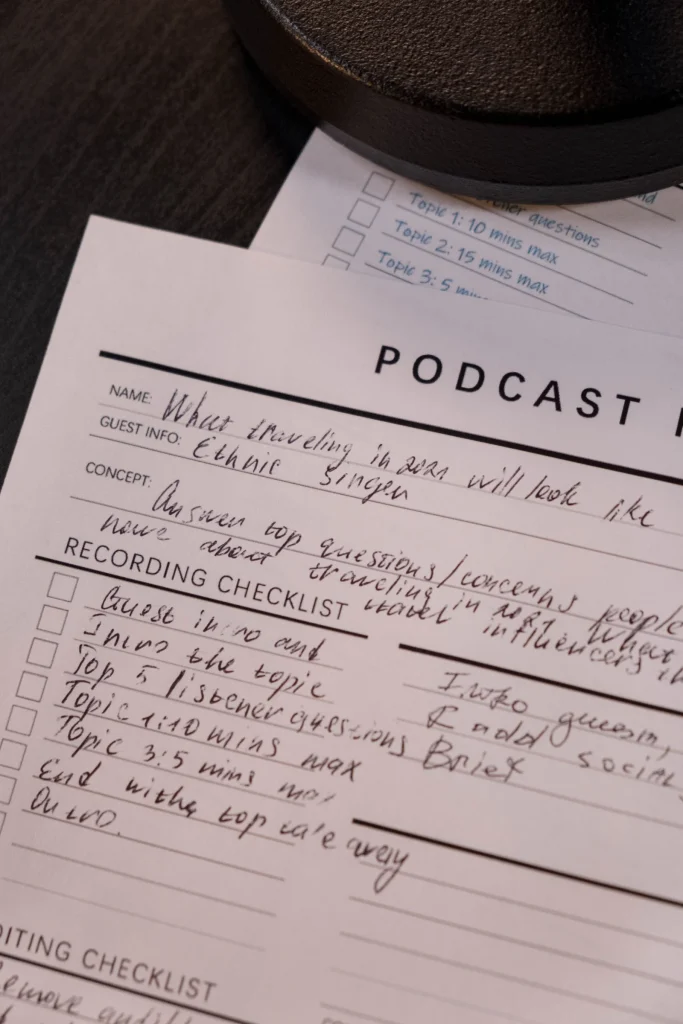 questions
Topic 1: 10 mins max
Topic 2: 15 mins max
Topic 3: 5
PODCAST
NAME: What traveling in 2021 will look like
GUEST INFO: Ethnic Singer
CONCEPT: Answer top questions/concerns people
have about traveling in 2021. What
travel influencers
RECORDING CHECKLIST
Guest intro and
Intro the topic
Top 5 listener questions
Topic 1:10 mins max
Topic 3:5 mins max
End with a top take away
Outro.
Intro
& add social
Brief
EDITING CHECKLIST
Remove